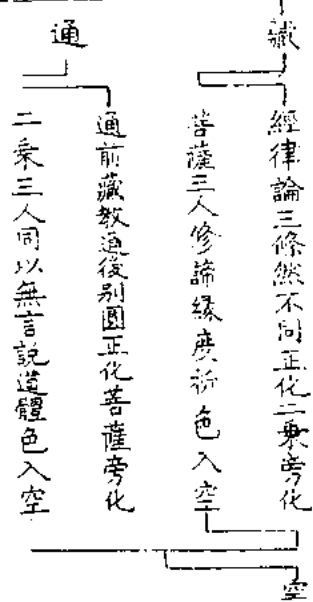 藏
經律論三條然不同正化二乘旁化
菩薩三人修諦緣度析色入空
通
通前藏教通後別圓正化菩薩旁化
二乘三人同以無言說道體色入空
空